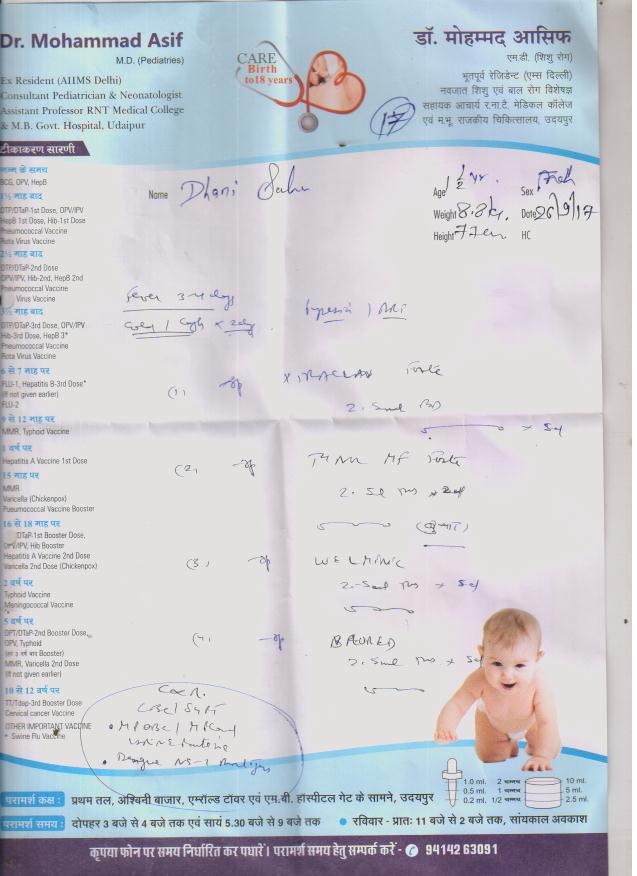 Dr. Mohammad Asif
M.D. (Pediatries)
Ex Resident (AIIMS Delhi)
Consultant Pediatrician & Neonatologist
Assistant Professor RNT Medical College
& M.B. Govt. Hospital, Udaipur
CARE
Birth
to18 years
डॉ. मोहम्मद आसिफ
एम.डी. (शिशु रोग)
भूतपूर्व रेजिडेन्ट (एम्स दिल्ली)
नवजात शिशु एवं बाल रोग विशेषज्ञ
सहायक आचार्य र.ना.टै. मेडिकल कॉलेज
एवं म.भू. राजकीय चिकित्सालय, उदयपुर
17
टीकाकरण सारणी
Name Dhani
Age 1 1/2 yr. Sex
Weight 8.8kg. Date 26/9/17
Height 77cm HC
जन्म के समय
BCG, OPV, HepB
1½ माह बाद
DTP/DTaP-1st Dose, OPV/IPV
HepB 1st Dose, Hib-1st Dose
Pneumococcal Vaccine
Rota Virus Vaccine
2½ माह बाद
DTP/DTaP-2nd Dose
OPV/IPV, Hib-2nd, HepB 2nd
Pneumococcal Vaccine
Virus Vaccine
3½ माह बाद
DTP/DTaP-3rd Dose, OPV/IPV
Hib-3rd Dose, HepB 3*
Pneumococcal Vaccine
Rota Virus Vaccine
6 से 7 माह पर
FLU-1, Hepatitis B-3rd Dose*
(If not given earlier)
FLU-2
9 से 12 माह पर
MMR, Typhoid Vaccine
1 वर्ष पर
Hepatitis A Vaccine 1st Dose
15 माह पर
MMR
Varicella (Chickenpox)
Pneumococcal Vaccine Booster
16 से 18 माह पर
DTaP-1st Booster Dose,
OPV/IPV, Hib Booster
Hepatitis A Vaccine 2nd Dose
Varicella 2nd Dose (Chickenpox)
2 वर्ष पर
Typhoid Vaccine
Meningococcal Vaccine
5 वर्ष पर
DPT/DTaP-2nd Booster Dose,
OPV, Typhoid
(हर 3 वर्ष बाद Booster)
MMR, Varicella 2nd Dose
(If not given earlier)
10 से 12 वर्ष पर
TT/Tdap-3rd Booster Dose
Cervical cancer Vaccine
OTHER IMPORTANT VACCINE
* Swine Flu Vaccine
Fever 3-4 days
Cold / Cough x 2 day
Pyrexia / ARI
(1) Forte
2.5ml BD
x 5d
(2) MF Forte
(बुखार)
(3)
2.5ml x 5d
(4)
2.5ml x 5d
1.0 ml.
0.5 ml.
0.2 ml.
2 चम्मच 10 ml.
1 चम्मच 5 ml.
1/2 चम्मच 2.5 ml.
परामर्श कक्ष : प्रथम तल, अश्विनी बाजार, एम्रॉल्ड टॉवर एवं एम.बी. हॉस्पीटल गेट के सामने, उदयपुर
परामर्श समय : दोपहर 3 बजे से 4 बजे तक एवं सायं 5.30 बजे से 9 बजे तक • रविवार - प्रातः 11 बजे से 2 बजे तक, सांयकाल अवकाश
कृपया फोन पर समय निर्धारित कर पधारें। परामर्श समय हेतु सम्पर्क करें - 94142 63091